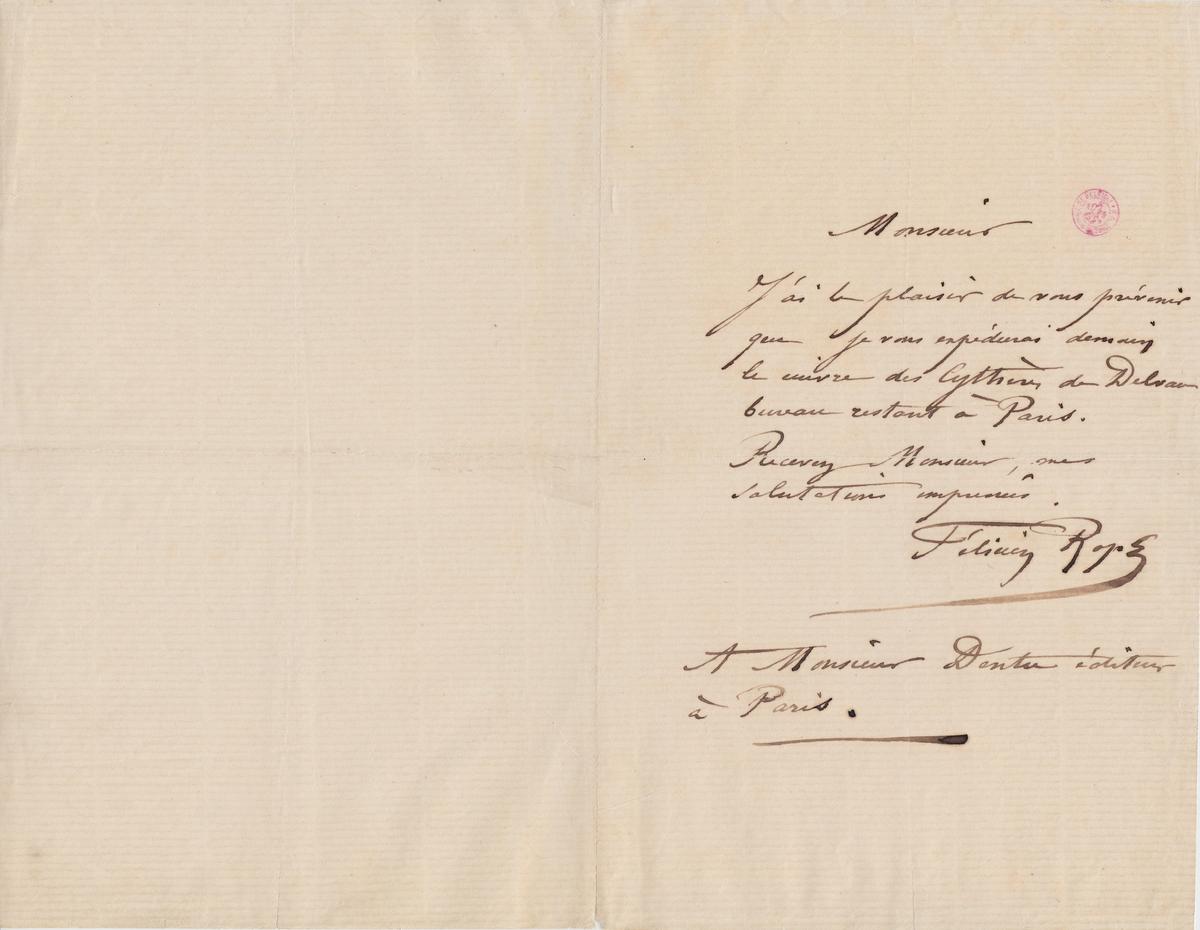 Monsieur
J'ai le plaisir de vous prévenir
que je vous expédierai demain
le cuivre des Cythères de Delvau
bureau restant à Paris.
Recevez Monsieur, mes
salutations empressées.
Félicien Rops
A Monsieur Dentu éditeur
à Paris.